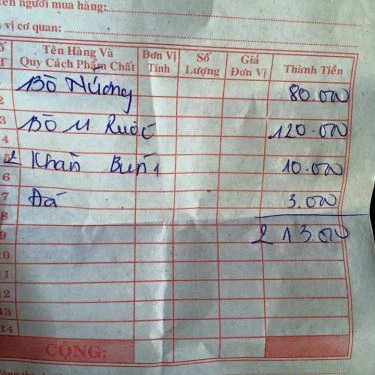 ên người mua hàng:
vị cơ quan:
Tên Hàng Và Quy Cách Phẩm Chất Đơn Vị Tính Số Lượng Giá Đơn Vị Thành Tiền
2 Bò Nướng 80.000
3
4 Bò Rước 120.000
5 2 Khăn 10.000
6
7 Đá 3.000
8
9 213.000
10
11
12
13
14
CỘNG: